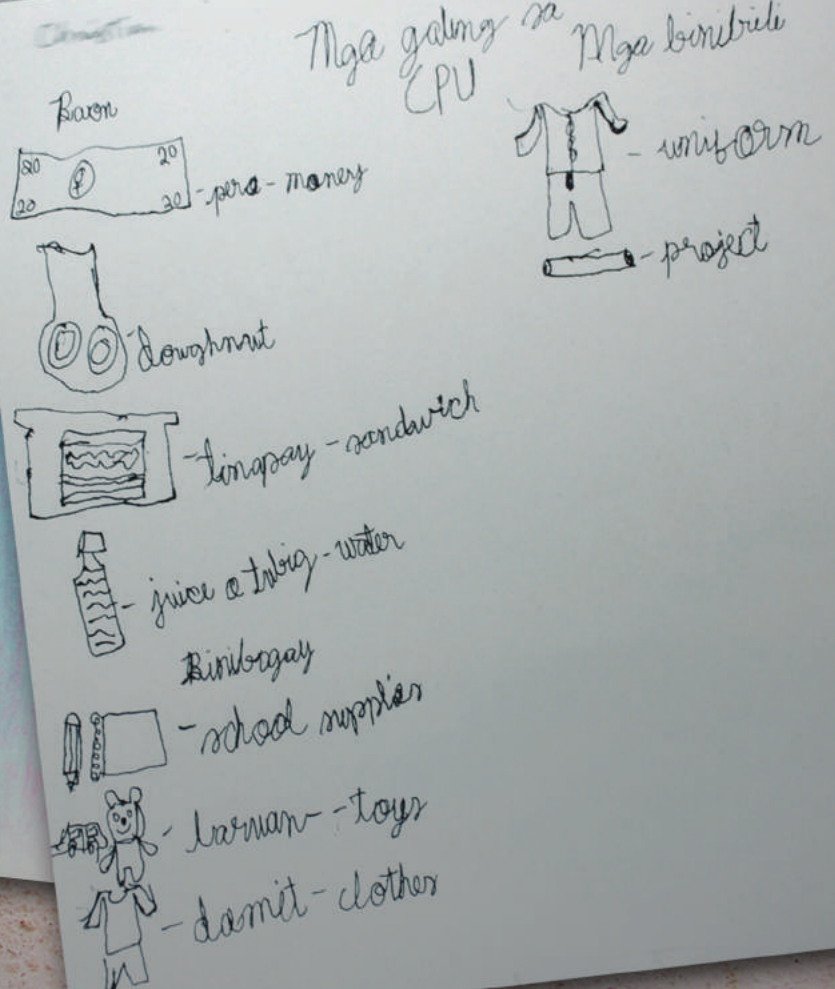 Mga galing sa
CPU
Mga binibili
Baon
20 20
20 20
- pera - money
- doughnut
- tinapay - sandwich
- juice o tubig - water
Binibigay
- school supplies
- laruan - toys
- damit - clothes
- uniform
- project